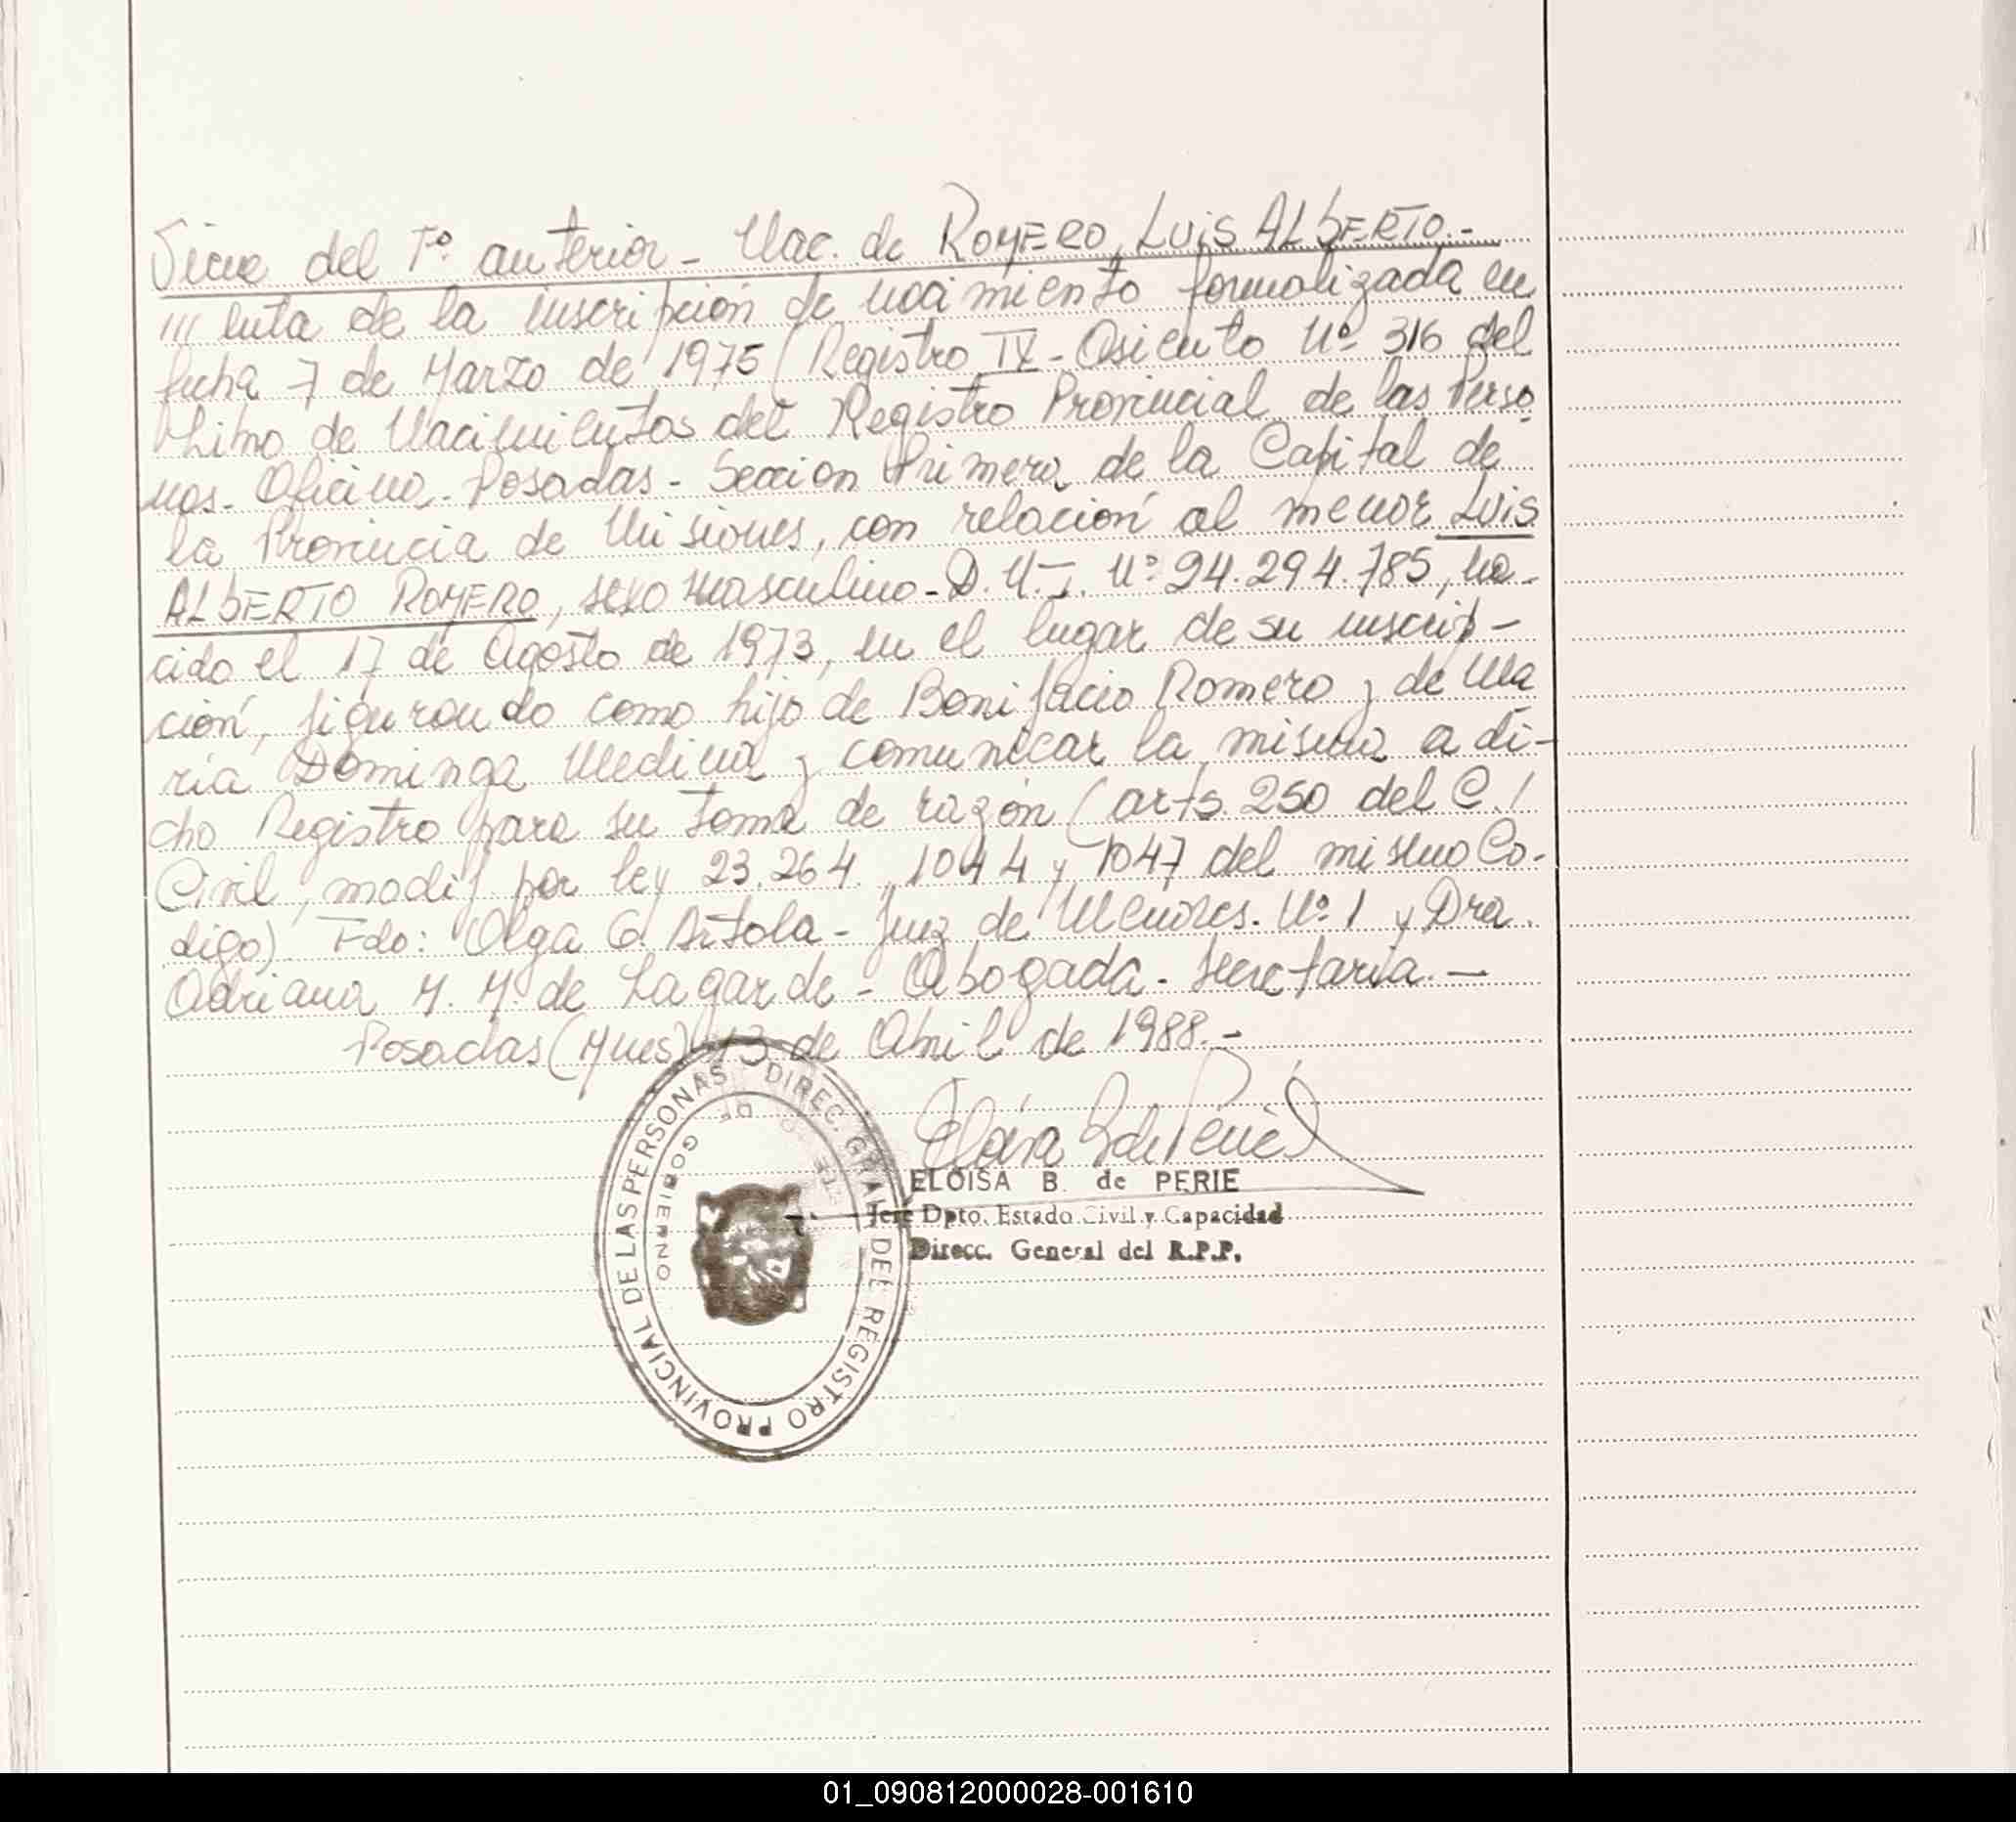 Sigue del Fº anterior - Nac. de ROMERO, LUIS ALBERTO.-
/// luta de la inscripción de nacimiento formalizada en
fecha 7 de Marzo de 1975 (Registro IX - Asiento Nº 316 del
Libro de Nacimientos del Registro Provincial de las Perso
nas - Oficina - Posadas - Sección Primera de la Capital de
la Provincia de Misiones, con relación al menor LUIS
ALBERTO ROMERO, sexo masculino - D.N.I. Nº 24.294.785, na-
cido el 17 de Agosto de 1973, en el lugar de su inscrip-
ción, figurando como hijo de Bonifacio Romero y de Ma
ría Dominga Medina y comunicar la misma a di-
cho Registro para su toma de razón (arts. 250 del C./
Civil, modif por ley 23.264, 1044 y 1047 del mismo Có-
digo). Fdo: Olga G. Artola - Juez de Menores. Nº 1 y Dra.
Adriana M. M. de Lagarde - Abogada - Secretaria.—
Posadas (Mnes) 13 de Abril de 1988.-
DIREC. GRAL. DEL REGISTRO PROVINCIAL DE LAS PERSONAS
GOBIERNO DE
ELOISA B. de PERIE
Jefe Dpto. Estado Civil y Capacidad
Direcc. General del R.P.P.
01_090812000028-001610